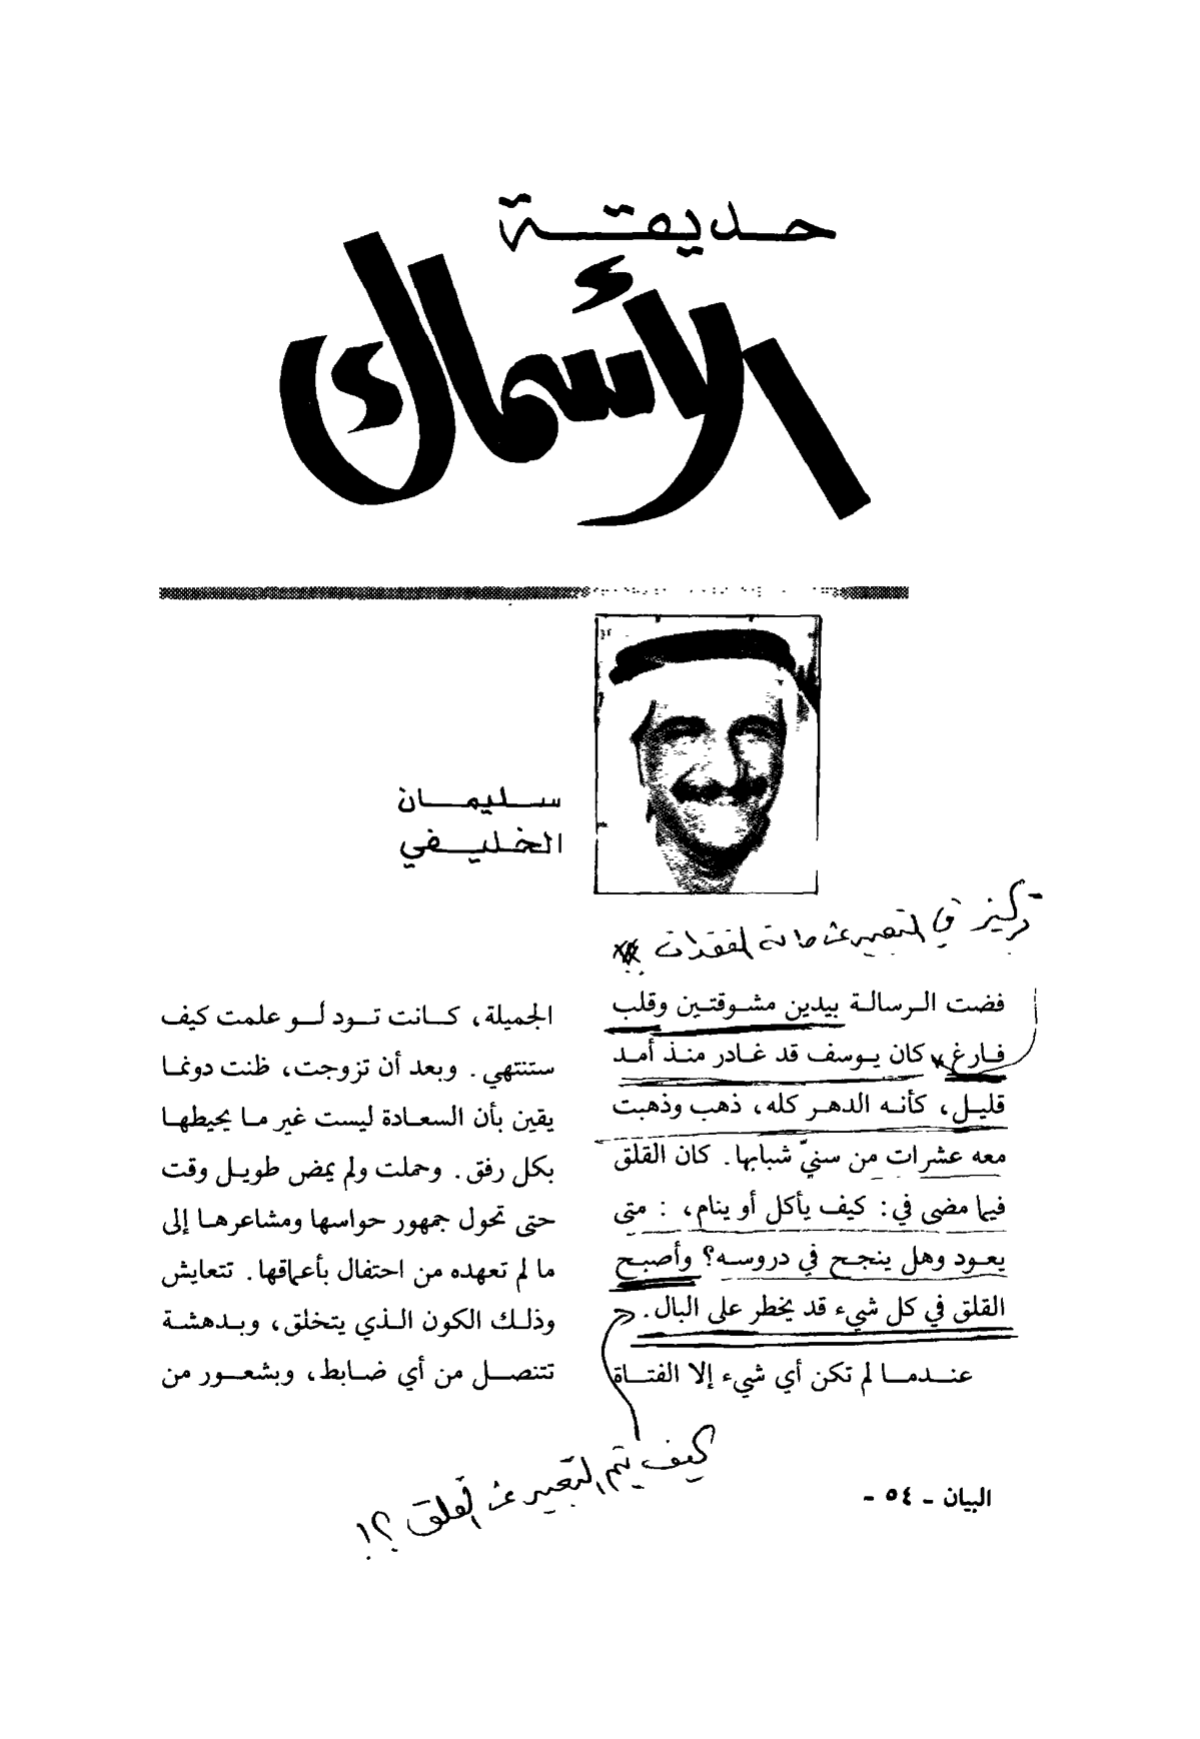 حديقة
الأسماك
سليمان
الخليفي
- تركيز في التعبير عن حالة الفقدان **
فضت الرسالة بيدين مشوقتين وقلب
فارغ كان يوسف قد غادر منذ أمد
قليل، كأنه الدهر كله، ذهب وذهبت
معه عشرات من سنيّ شبابها. كان القلق
فيما مضى في: كيف يأكل أو ينام، : متى
يعود وهل ينجح في دروسه؟ وأصبح
القلق في كل شيء قد يخطر على البال.
عندما لم تكن أي شيء إلا الفتاة
الجميلة، كانت تود لو علمت كيف
ستنتهي. وبعد أن تزوجت، ظنت دونما
يقين بأن السعادة ليست غير ما يحيطها
بكل رفق. وحملت ولم يمض طويل وقت
حتى تحول جمهور حواسها ومشاعرها إلى
ما لم تعهده من احتفال بأعماقها. تتعايش
وذلك الكون الذي يتخلق، وبدهشة
تتنصل من أي ضابط، وبشعور من
كيف يتم التعبير عن القلق ؟!
البيان - ٥٤ -